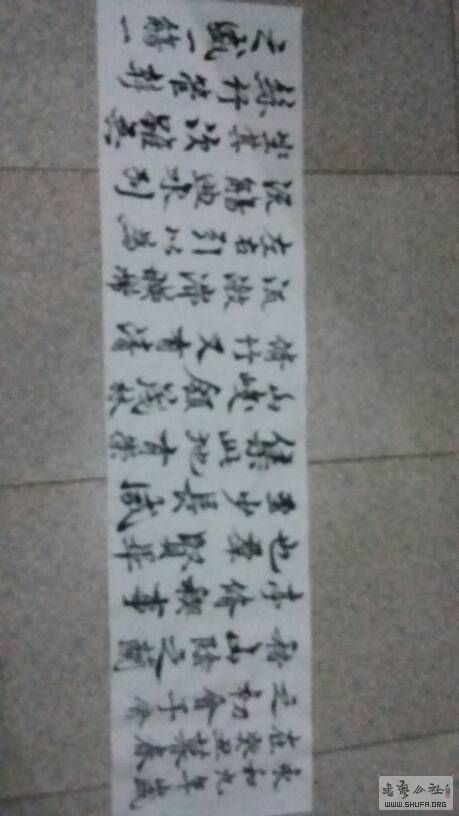 永和九年歲
在癸丑暮春
之初會于會
稽山陰之蘭
亭脩禊事
也群賢畢
至少長咸
集此地有崇
山峻領茂林
脩竹又有清
流激湍映帶
左右引以為
流觴曲水列
坐其次雖無
絲竹管弦
之盛一觴一
WWW.SHUFA.ORG